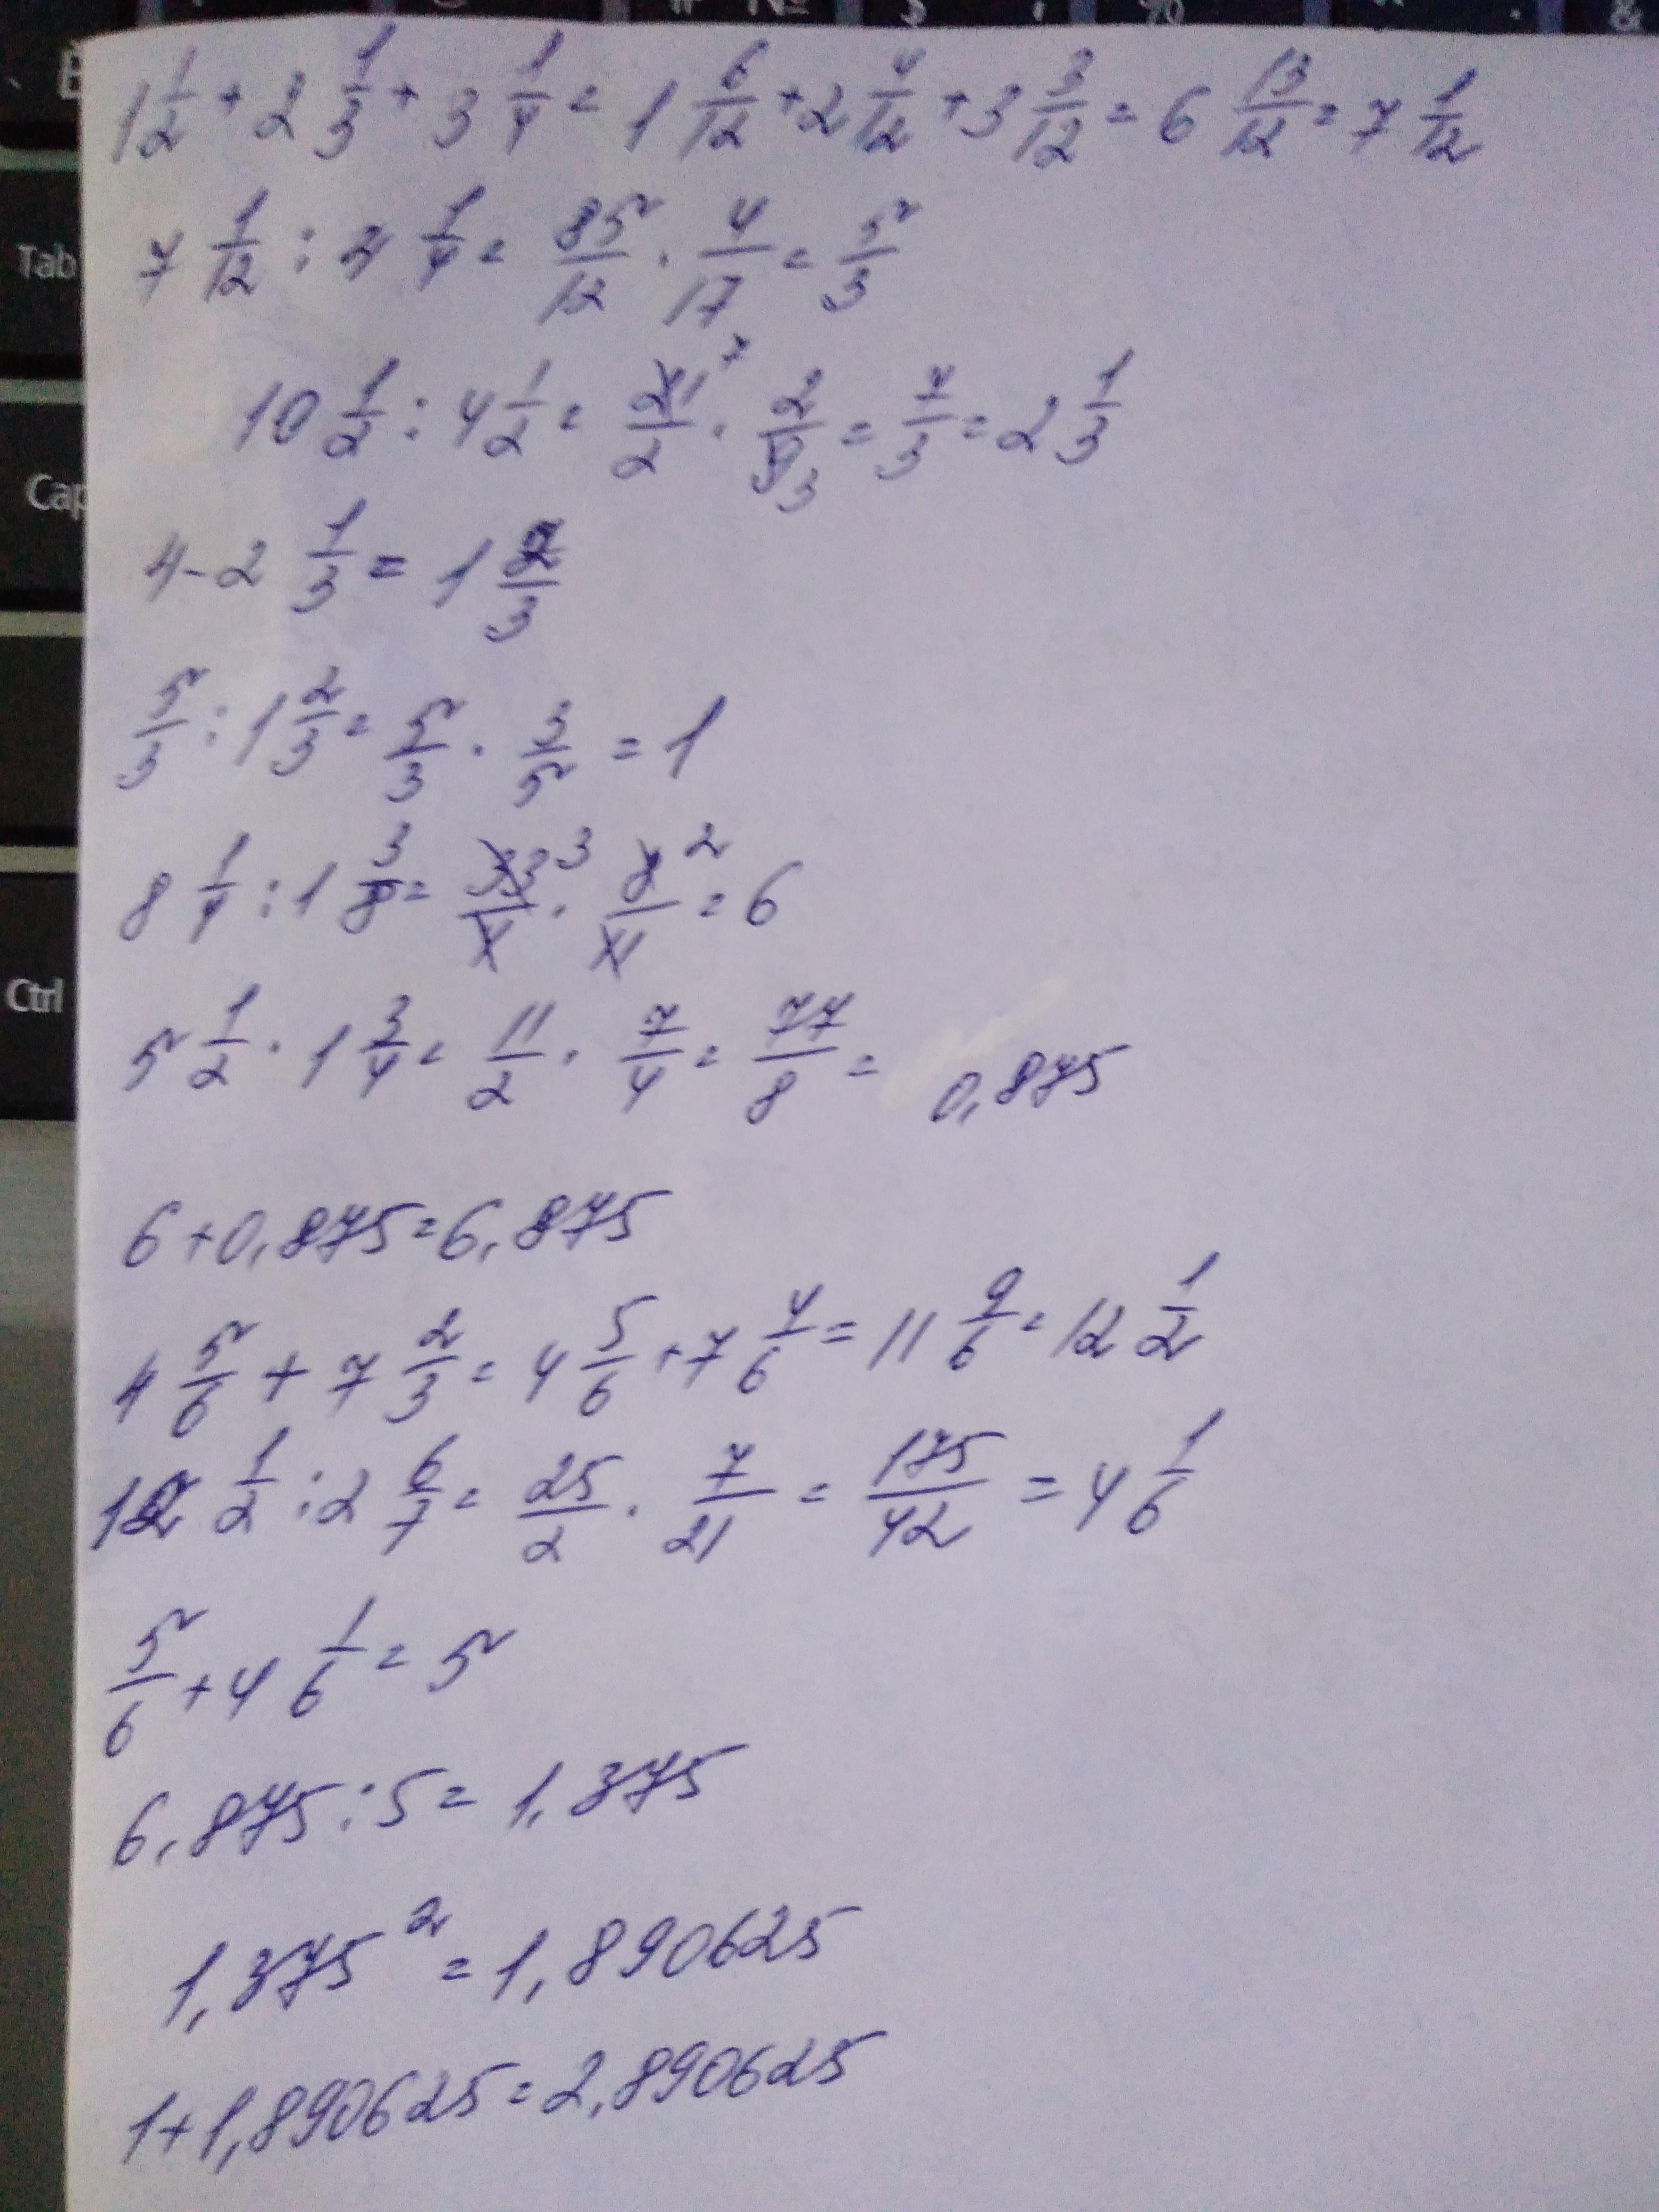 # № $ ; %
&
Tab
Cap
Ctrl
1 1/2 + 2 1/3 + 3 1/4 = 1 6/12 + 2 4/12 + 3 3/12 = 6 13/12 = 7 1/12
7 1/12 : 4 1/4 = 85/12 · 4/17 = 5/3
10 1/2 : 4 1/2 = 21/2 7 · 2/9 3 = 7/3 = 2 1/3
4 - 2 1/3 = 1 2/3
5/3 : 1 2/3 = 5/3 · 3/5 = 1
8 1/4 : 1 3/8 = 33/4 3 · 8/11 2 = 6
5 1/2 · 1 3/4 = 11/2 · 7/4 = 77/8 = 0,875
6 + 0,875 = 6,875
4 5/6 + 7 2/3 = 4 5/6 + 7 4/6 = 11 9/6 = 12 1/2
12 1/2 : 2 6/7 = 25/2 · 7/21 = 175/42 = 4 1/6
5/6 + 4 1/6 = 5
6,875 : 5 = 1,375
1,375² = 1,890625
1 + 1,890625 = 2,890625